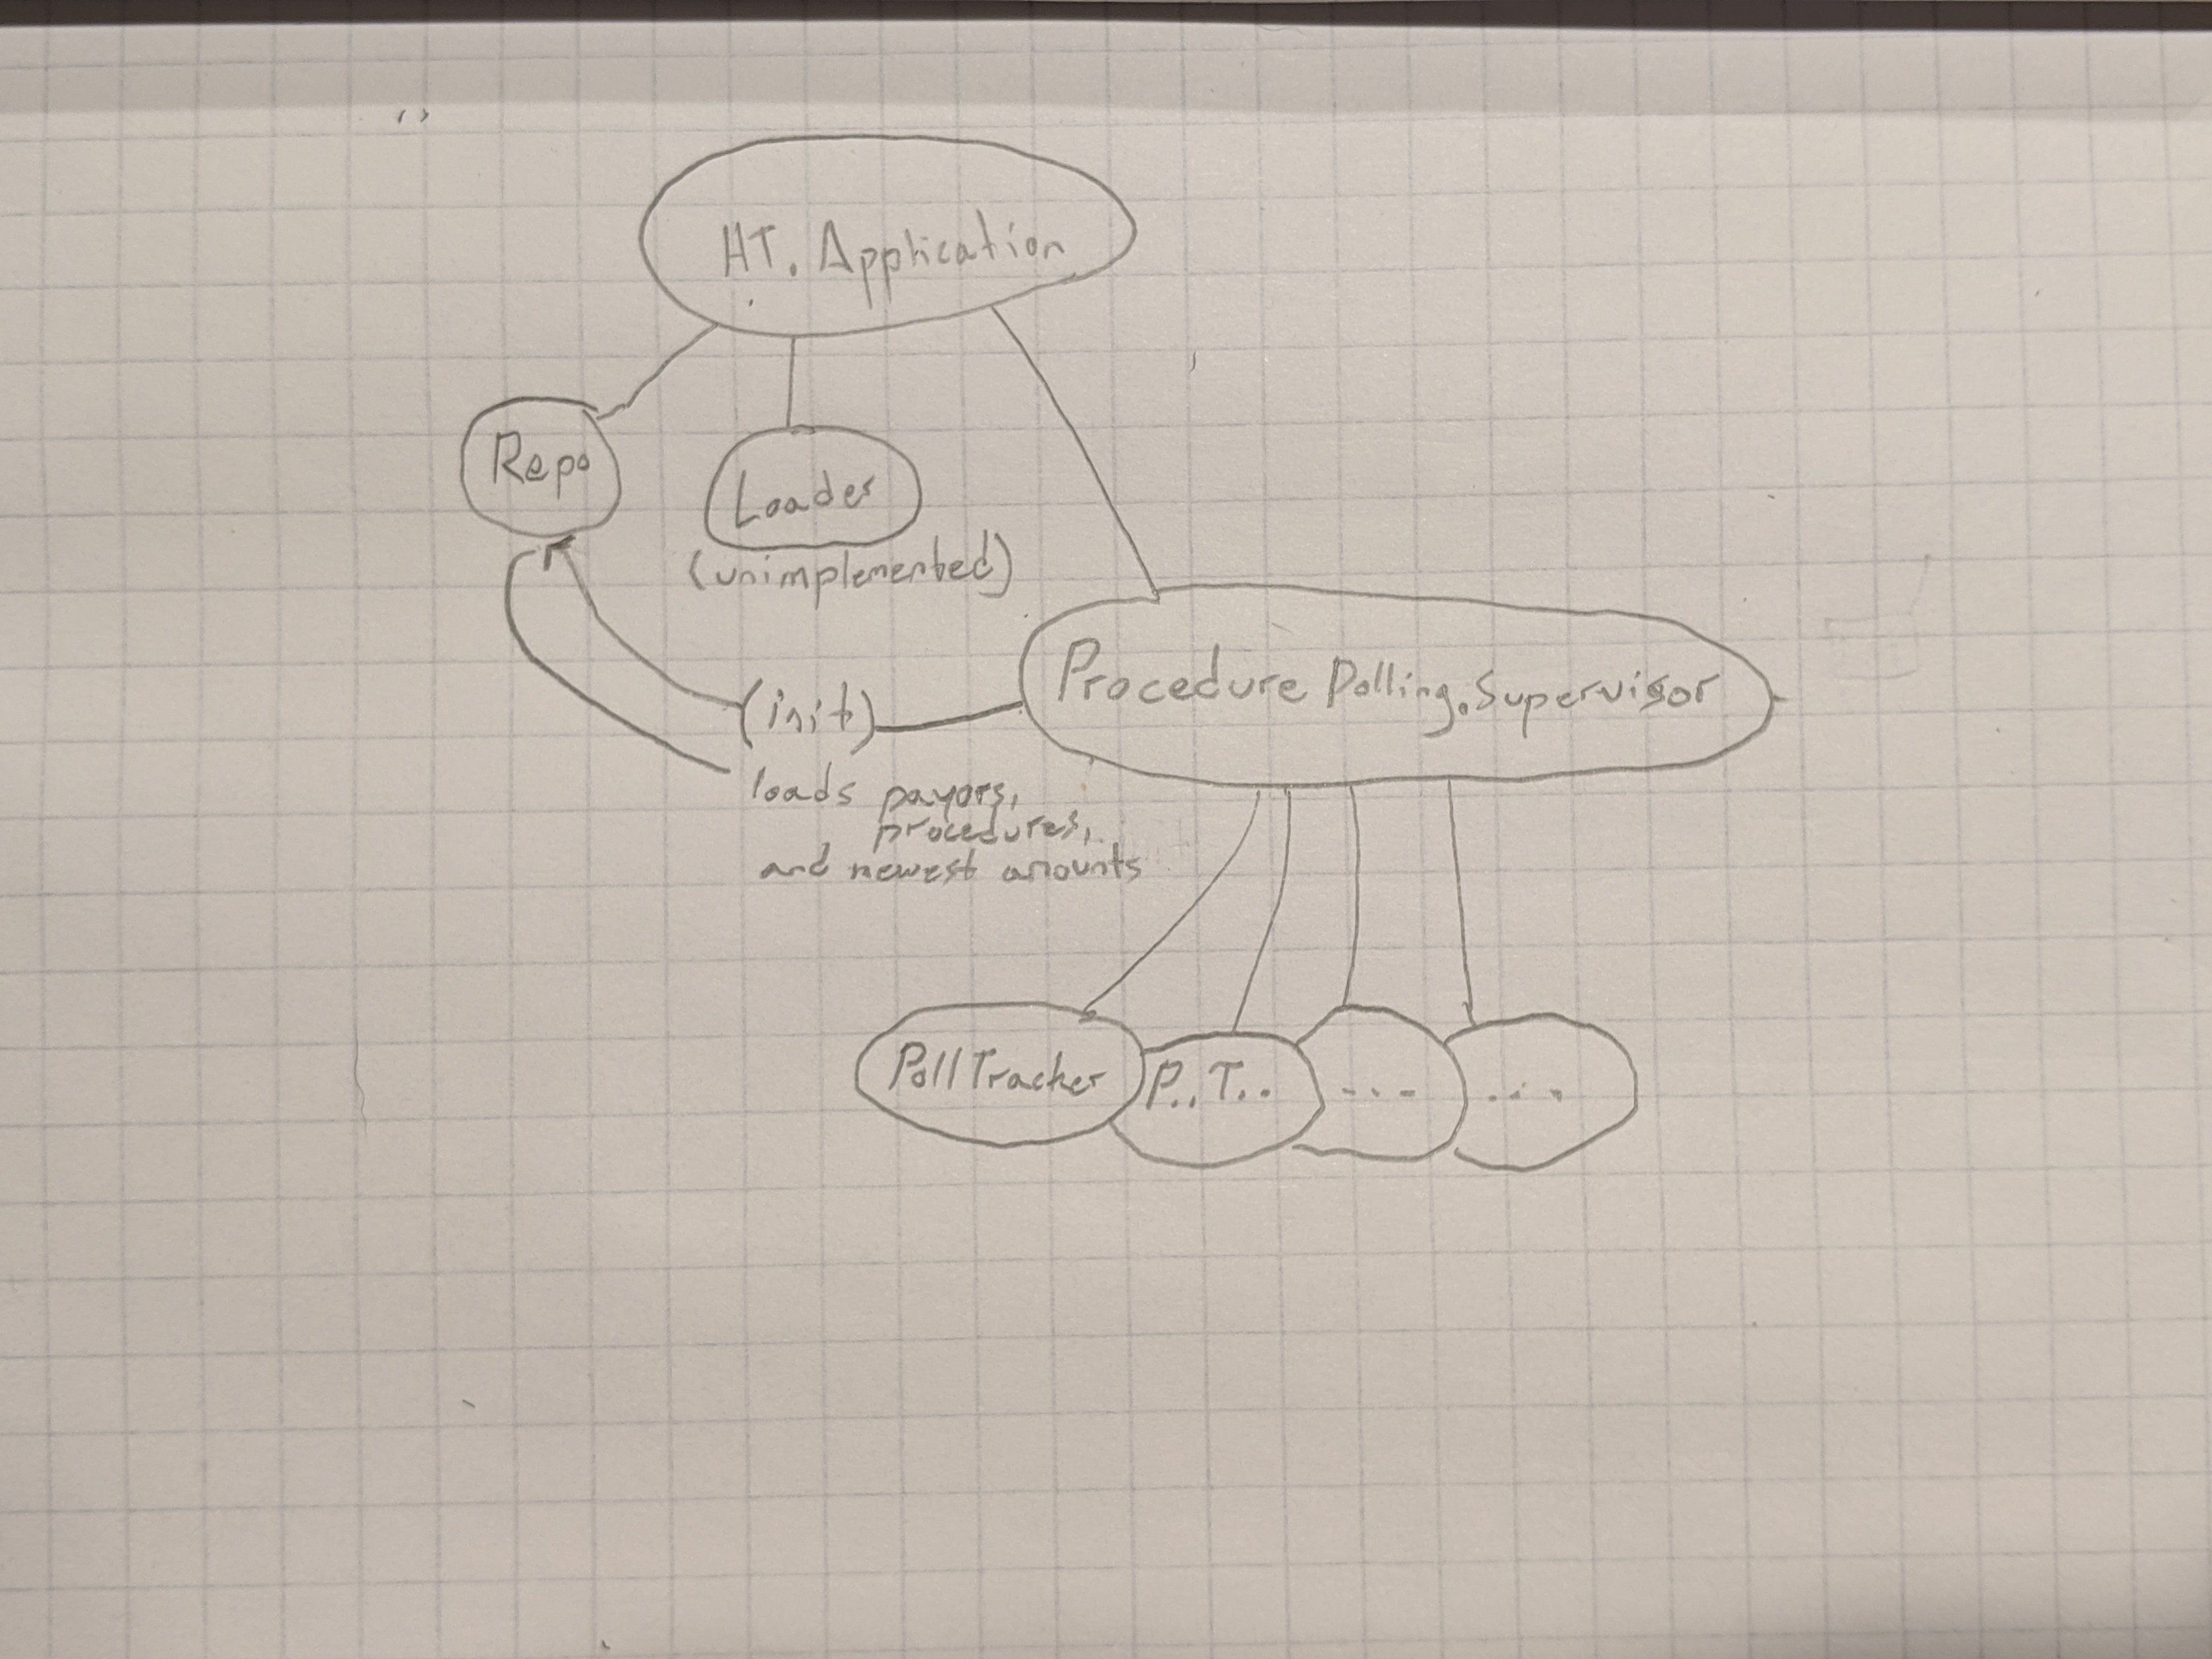 HT. Application
Repo
Loader
(unimplemented)
(init)
Procedure Polling.Supervisor
loads payors,
procedures,
and newest amounts
Poll Tracker
P.. T..
...
...